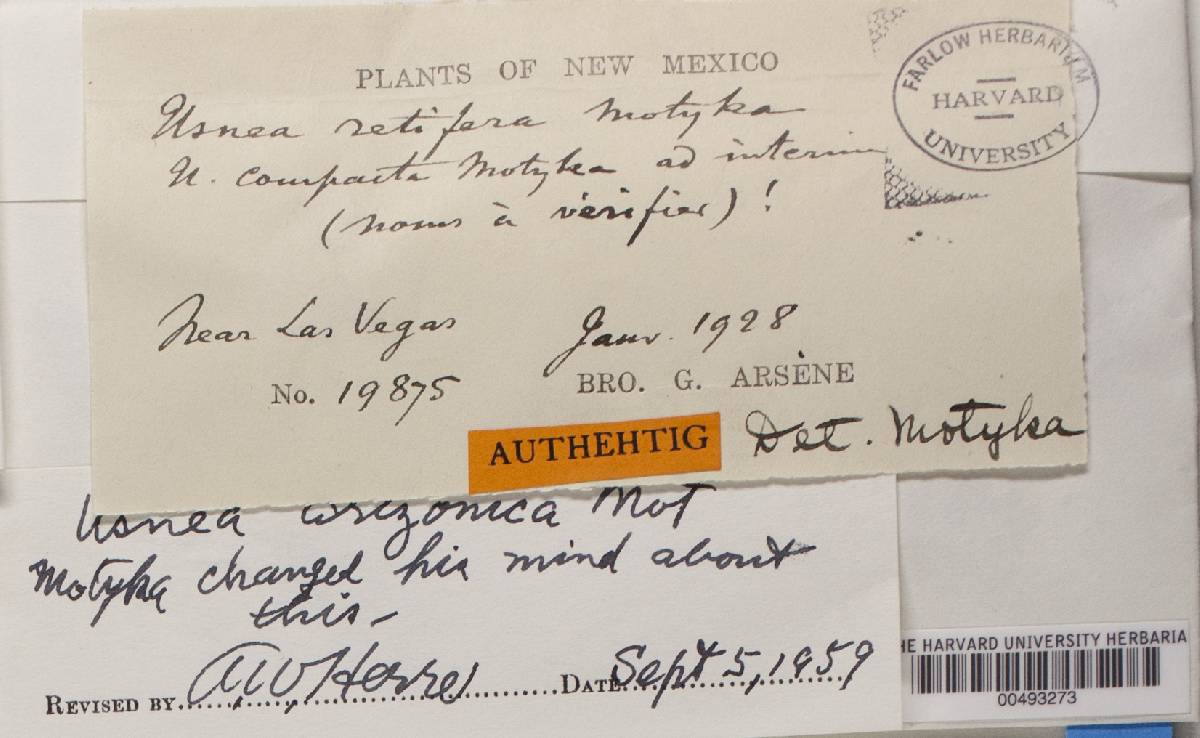 PLANTS OF NEW MEXICO
Usnea retifera Motyka
U. compacta Motyka ad interim
(noms à vérifier) !
Near Las Vegas Janv. 1928
No. 19875 BRO. G. ARSÈNE
AUTHEHTIG Det. Motyka
FARLOW HERBARIUM
HARVARD
UNIVERSITY
Usnea arizonica Mot
Motyka changed his mind about
this-
REVISED BY A W Herre DATE Sept 5, 1959
HE HARVARD UNIVERSITY HERBARIA
00493273